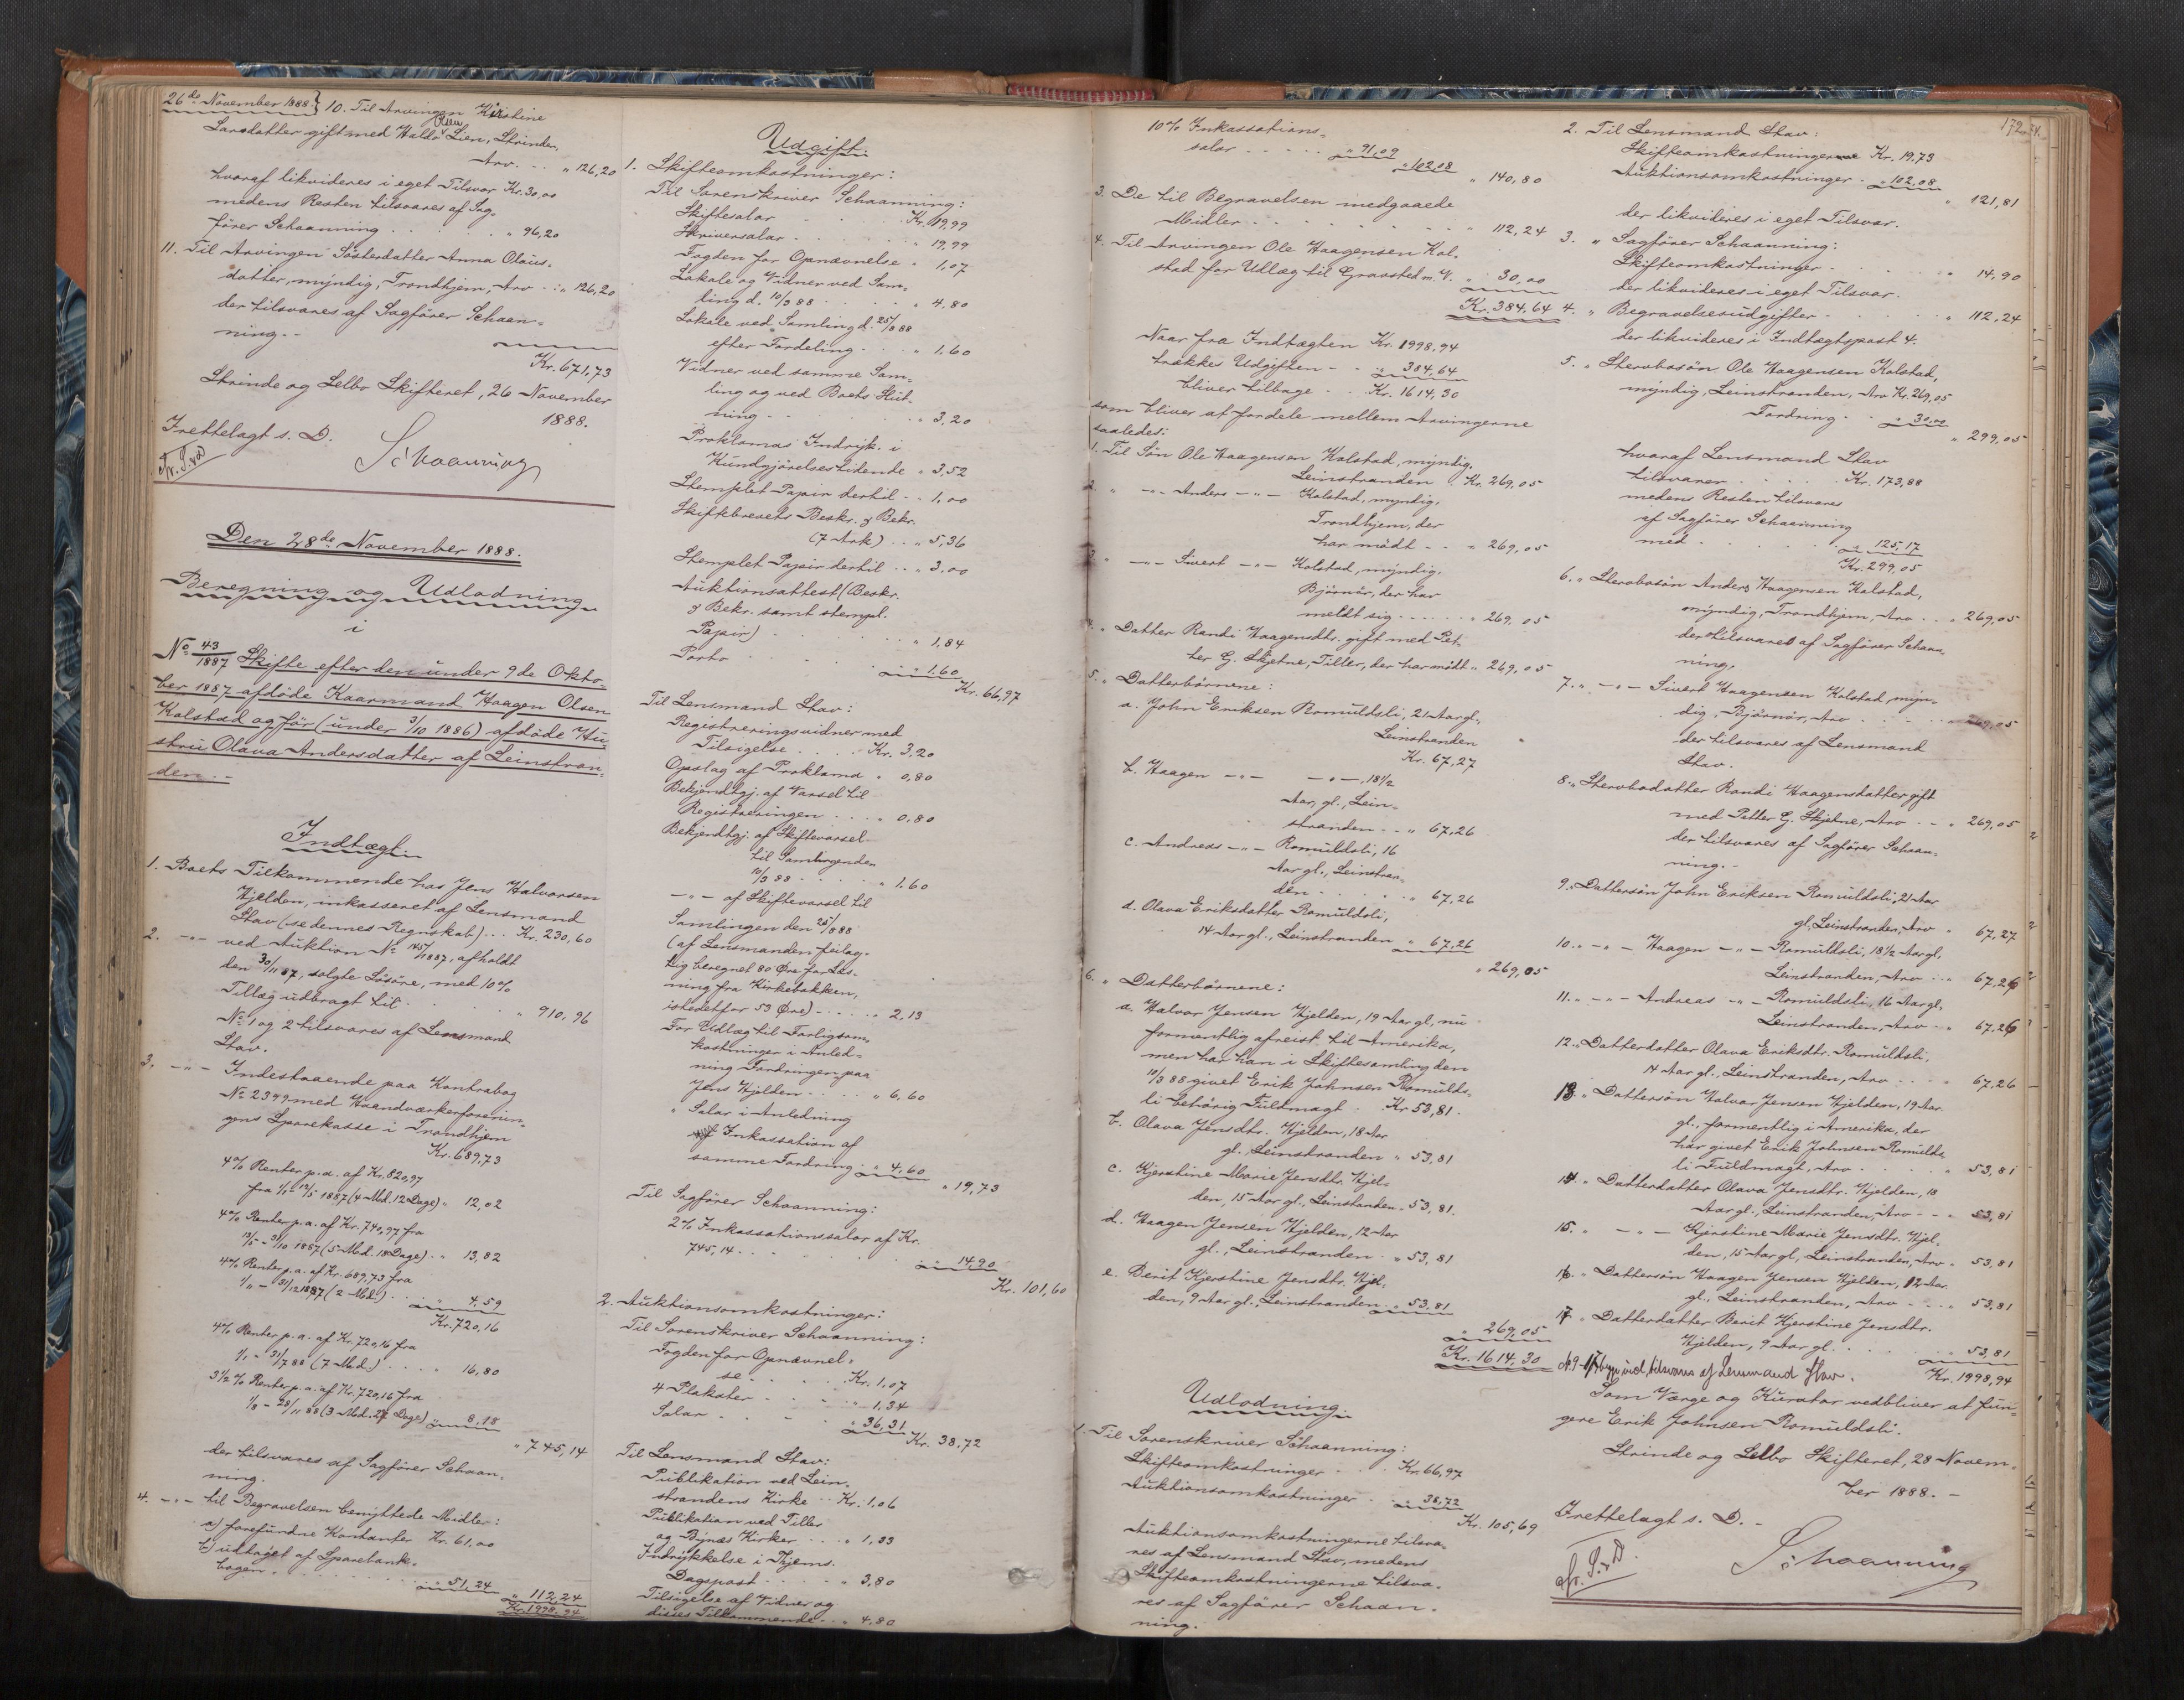 26de November 1888. } 10. Til Arvingen Kirstine
Larsdatter gift med Haldo Olsen Lien, Strinden,
Arv . . . " 126,20
hvoraf likvideres i eget Tilsvar Kr. 30,00
medens Resten tilsvares af Sag-
fører Schaanning . . . . " 96,20
11. Til Arvingen Søsterdatter Anna Olaus-
datter, myndig, Trondhjem, Arv . . " 126,20
der tilsvares af Sagfører Schaan-
ning. -
Kr. 671,73
Strinde og Selbo Skifteret, 26 November
1888.
Frettelagt s. D.
Schaanning
Den 28de November 1888.
Beregning og Udlodning
i
No 43/1887 Skifte efter den under 9de Okto-
ber 1887 afdøde Kaarmand Haagen Olsen
Kolstad og før (under 3/10 1886) afdøde Hu-
stru Olava Andersdatter af Leinstran-
den. -
Indtægt.
1. Boets Tilkommende hos Jens Halvorsen
Hjelden, inkasseret af Lensmand
Stav (se dennes Regnskab) . . . Kr. 230,60
2. -"- ved Auktion No 45/1887, afholdt
den 30/11 87, solgte Løsøre, med 10%
Tillæg udbragt til . . . " 910,96
No 1 og 2 tilsvares af Lensmand
Stav.
3. -"- Indestaaende paa Kontrabog
No 2399 med Haandværkerforenin-
gens Sparekasse i Trondhjem
Kr. 689,73
4% Renter p.a. af Kr. 820,97
fra 1/1 - 12/5 1887 (4 Md. 12 Dage) " 12,02
4% Renter p.a. af Kr. 740,97 fra
13/5 - 31/10 1887 (5 Md. 18 Dage) . " 13,82
4% Renter p.a. af Kr. 689,73 fra
1/11 - 31/12 1887 (2 Md.) . . . " 4,59
Kr. 720,16
4% Renter p.a. af Kr. 720,16 fra
1/1 - 31/7 88 (7 Md.) . . . . " 16,80
3 1/2 % Renter p.a. af Kr. 720,16 fra
1/8 - 28/11 88 (3 Md. 27 Dage) " 8,18
" 745,14
der tilsvares af Sagfører Schaan-
ning.
4. -"- til Begravelsen benyttede Midler:
a) forefundne Kontanter Kr. 61,00
b) udtaget af Sparebank-
bogen . . . . . " 51,24
" 112,24
Kr. 1998,94
Udgift.
1. Skifteomkostninger:
Til Sorenskriver Schaanning:
Skiftesalar . . . . Kr. 19,99
Skriversalar . . . . " 19,99
Fogden for Opnævnelse " 1,07
Lokale og Vidner ved Sam-
ling d. 10/3 88 . . . . " 4,80
Lokale ved Samling d. 25/8 88
efter Fordeling . . . " 1,60
Vidner ved samme Sam-
ling og ved Boets Slut-
ning . . . . " 3,20
Proklamas Indryk. i
Kundgjørelsestidende " 3,52
Stemplet Papir dertil . . " 1,00
Skiftebrevets Beskr. & Bekr.
(7 Ark) . . " 5,36
Stemplet Papir dertil . . " 3,00
Auktionsattest (Beskr.
& Bekr. samt stempl.
Papir) . . . . " 1,84
Porto . . . . " 1,60
Kr. 66,97
Til Lensmand Stav:
Registreringsvidner med
Tilsigelse . . . . Kr. 3,20
Opslag af Proklama " 0,80
Bekjendtgj. af Varsel til
Registreringen . . . . " 0,80
Bekjendtgj. af Skiftevarsel
til Samlingen den
10/3 88 . . . . " 1,60
-"- af Skiftevarsel til
Samlingen den 25/8 88
(af Lensmanden feilag-
tig beregnet 80 Øre for Læs-
ning fra Kirkebakken,
istedetfor 53 Øre) . . . . " 2,13
For Udlæg til Forligsom-
kostninger i Anled-
ning Fordringen paa
Jens Hjelden . . . . " 6,60
" Salar i Anledning
Inkassation af
samme Fordring . " 4,60
" 19,73
Til Sagfører Schaanning:
2% Inkassationssalar af Kr.
745,14 . . . . " 14,90
Kr. 101,60
2. Auktionsomkostninger:
Til Sorenskriver Schaanning:
Fogden for Opnævnel-
se . . . . Kr. 1,07
4 Plakater . . . " 1,34
Salar . . . . " 36,31
Kr. 38,72
Til Lensmand Stav:
Publikation ved Lein-
strandens Kirke . . Kr. 1,06
Publikation ved Tiller
og Bynes Kirker . . . " 1,33
Indrykkelse i Thjems.
Dagspost . . . . " 3,80
Tilsigelse af Vidner og
disses Tilkommende . . " 4,80
10% Inkassations-
salar . . . . " 91,09
" 102,08
" 140,80
3. De til Begravelsen medgaaede
Midler . . . . " 112,24
4. Til Arvingen Ole Haagensen Kol-
stad for Udlæg til Gravsted m. V. " 30,00
Kr. 384,64
Naar fra Indtægten Kr. 1998,94
trækkes Udgiften - " 384,64
bliver tilbage . . Kr. 1614,30
som bliver at fordele mellem Arvingerne
saaledes:
1. Til Søn Ole Haagensen Kolstad, myndig,
Leinstranden . Kr. 269,05
2. " -"- Anders -"- Kolstad, myndig,
Trondhjem, der
har mødt . . . " 269,05
3. " -"- Sivert -"- Kolstad, myndig,
Bjørnør, der har
meldt sig . . . . " 269,05
4. " Datter Randi Haagensdtr. gift med Pet-
ter G. Skjetne, Tiller, der har mødt " 269,05
5. " Datterbørnene:
a. John Eriksen Romuldsli, 21 Aar gl.,
Leinstranden
Kr. 67,27
b. Haagen -"- -"-, 18 1/2
Aar gl., Lein-
stranden . . " 67,26
c. Andreas -"- Romuldsli, 16
Aar gl., Leinstran-
den . . . . " 67,26
d. Olava Eriksdatter Romuldsli,
14 Aar gl., Leinstranden " 67,26
" 269,05
6. " Datterbørnene:
a. Halvor Jensen Hjelden, 19 Aar gl., nu
formentlig afreist til Amerika,
men har han i Skiftesamling den
10/3 88 givet Erik Johnsen Romulds-
li behørig Fuldmagt . . Kr 53,81.
b. Olava Jensdtr. Hjelden, 18 Aar
gl., Leinstranden " 53,81
c. Kjerstine Marie Jensdtr. Hjel-
den, 15 Aar gl., Leinstranden " 53,81.
d. Haagen Jensen Hjelden, 12 Aar
gl., Leinstranden . " 53,81
e. Berit Kjerstine Jensdtr. Hjel-
den, 9 Aar gl., Leinstranden " 53,81
" 269,05
Kr. 1614,30
Udlodning.
1. Til Sorenskriver Schaanning:
Skifteomkostninger . . . Kr. 66,97
Auktionsomkostninger . " 38,72
Kr. 105,69
Auktionsomkostningerne tilsva-
res af Lensmand Stav, medens
Skifteomkostningerne tilsva-
res af Sagfører Schaan-
ning.
172
2. Til Lensmand Stav:
Skifteomkostningerne Kr. 19,73
Auktionsomkostninger . " 102,08
" 121,81
der likvideres i eget Tilsvar.
3. " Sagfører Schaanning:
Skifteomkostninger . . . " 14,90
der likvideres i eget Tilsvar.
4. " Begravelsesudgifter . . . . " 112,24
der likvideres i Indtægtspost 4.
5. " Stervbosøn Ole Haagensen Kolstad,
myndig, Leinstranden, Arv Kr. 269,05
Fordring . . " 30,00
" 299,05
hvoraf Lensmand Stav
tilsvarer . . . . Kr. 173,88
medens Resten tilsvares
af Sagfører Schaanning
med . . . . . " 125,17
Kr. 299,05
6. " Stervbosøn Anders Haagensen Kolstad,
myndig, Trondhjem, Arv . . . " 269,05
der tilsvares af Sagfører Schaan-
ning.
7. " -"- Sivert Haagensen Kolstad, myn-
dig, Bjørnør, Arv . . . . " 269,05
der tilsvares af Lensmand
Stav.
8. " Stervbodatter Randi Haagensdatter gift
med Petter G. Skjetne, Arv . . " 269,05
der tilsvares af Sagfører Schaan-
ning. -
9. " Dattersøn John Eriksen Romuldsli, 21 Aar
gl., Leinstranden, Arv " 67,27
10. " -"- Haagen -"- Romuldsli, 18 1/2 Aar gl.,
Leinstranden, Arv . . " 67,26
11. " -"- Andreas -"- Romuldsli, 16 Aar gl.,
Leinstranden, Arv . . " 67,26
12. " Datterdatter Olava Eriksdtr. Romuldsli,
14 Aar gl., Leinstranden, Arv . . . " 67,26
13. " Dattersøn Halvor Jensen Hjelden, 19 Aar
gl., formentlig i Amerika, der
har givet Erik Johnsen Romulds-
li Fuldmagt, Arv . . . . " 53,81
14. " Datterdatter Olava Jensdtr. Hjelden, 18
Aar gl., Leinstranden, Arv . . . " 53,81
15. " -"- Kjerstine Marie Jensdtr. Hjel-
den, 15 Aar gl., Leinstranden, Arv " 53,81
16. " Dattersøn Haagen Jensen Hjelden, 12 Aar
gl., Leinstranden, Arv . . . . " 53,81
17. " Datterdatter Berit Kjerstine Jensdtr.
Hjelden, 9 Aar gl. . . . . " 53,81
Kr. 1998,94
tilsvares af Lensmand Stav.
Som Værge og Kurator vedbliver at fun-
gere Erik Johnsen Romuldsli.
Strinde og Selbo Skifteret, 28 Novem-
ber 1888. -
Frettelagt s. D. -
Schaanning